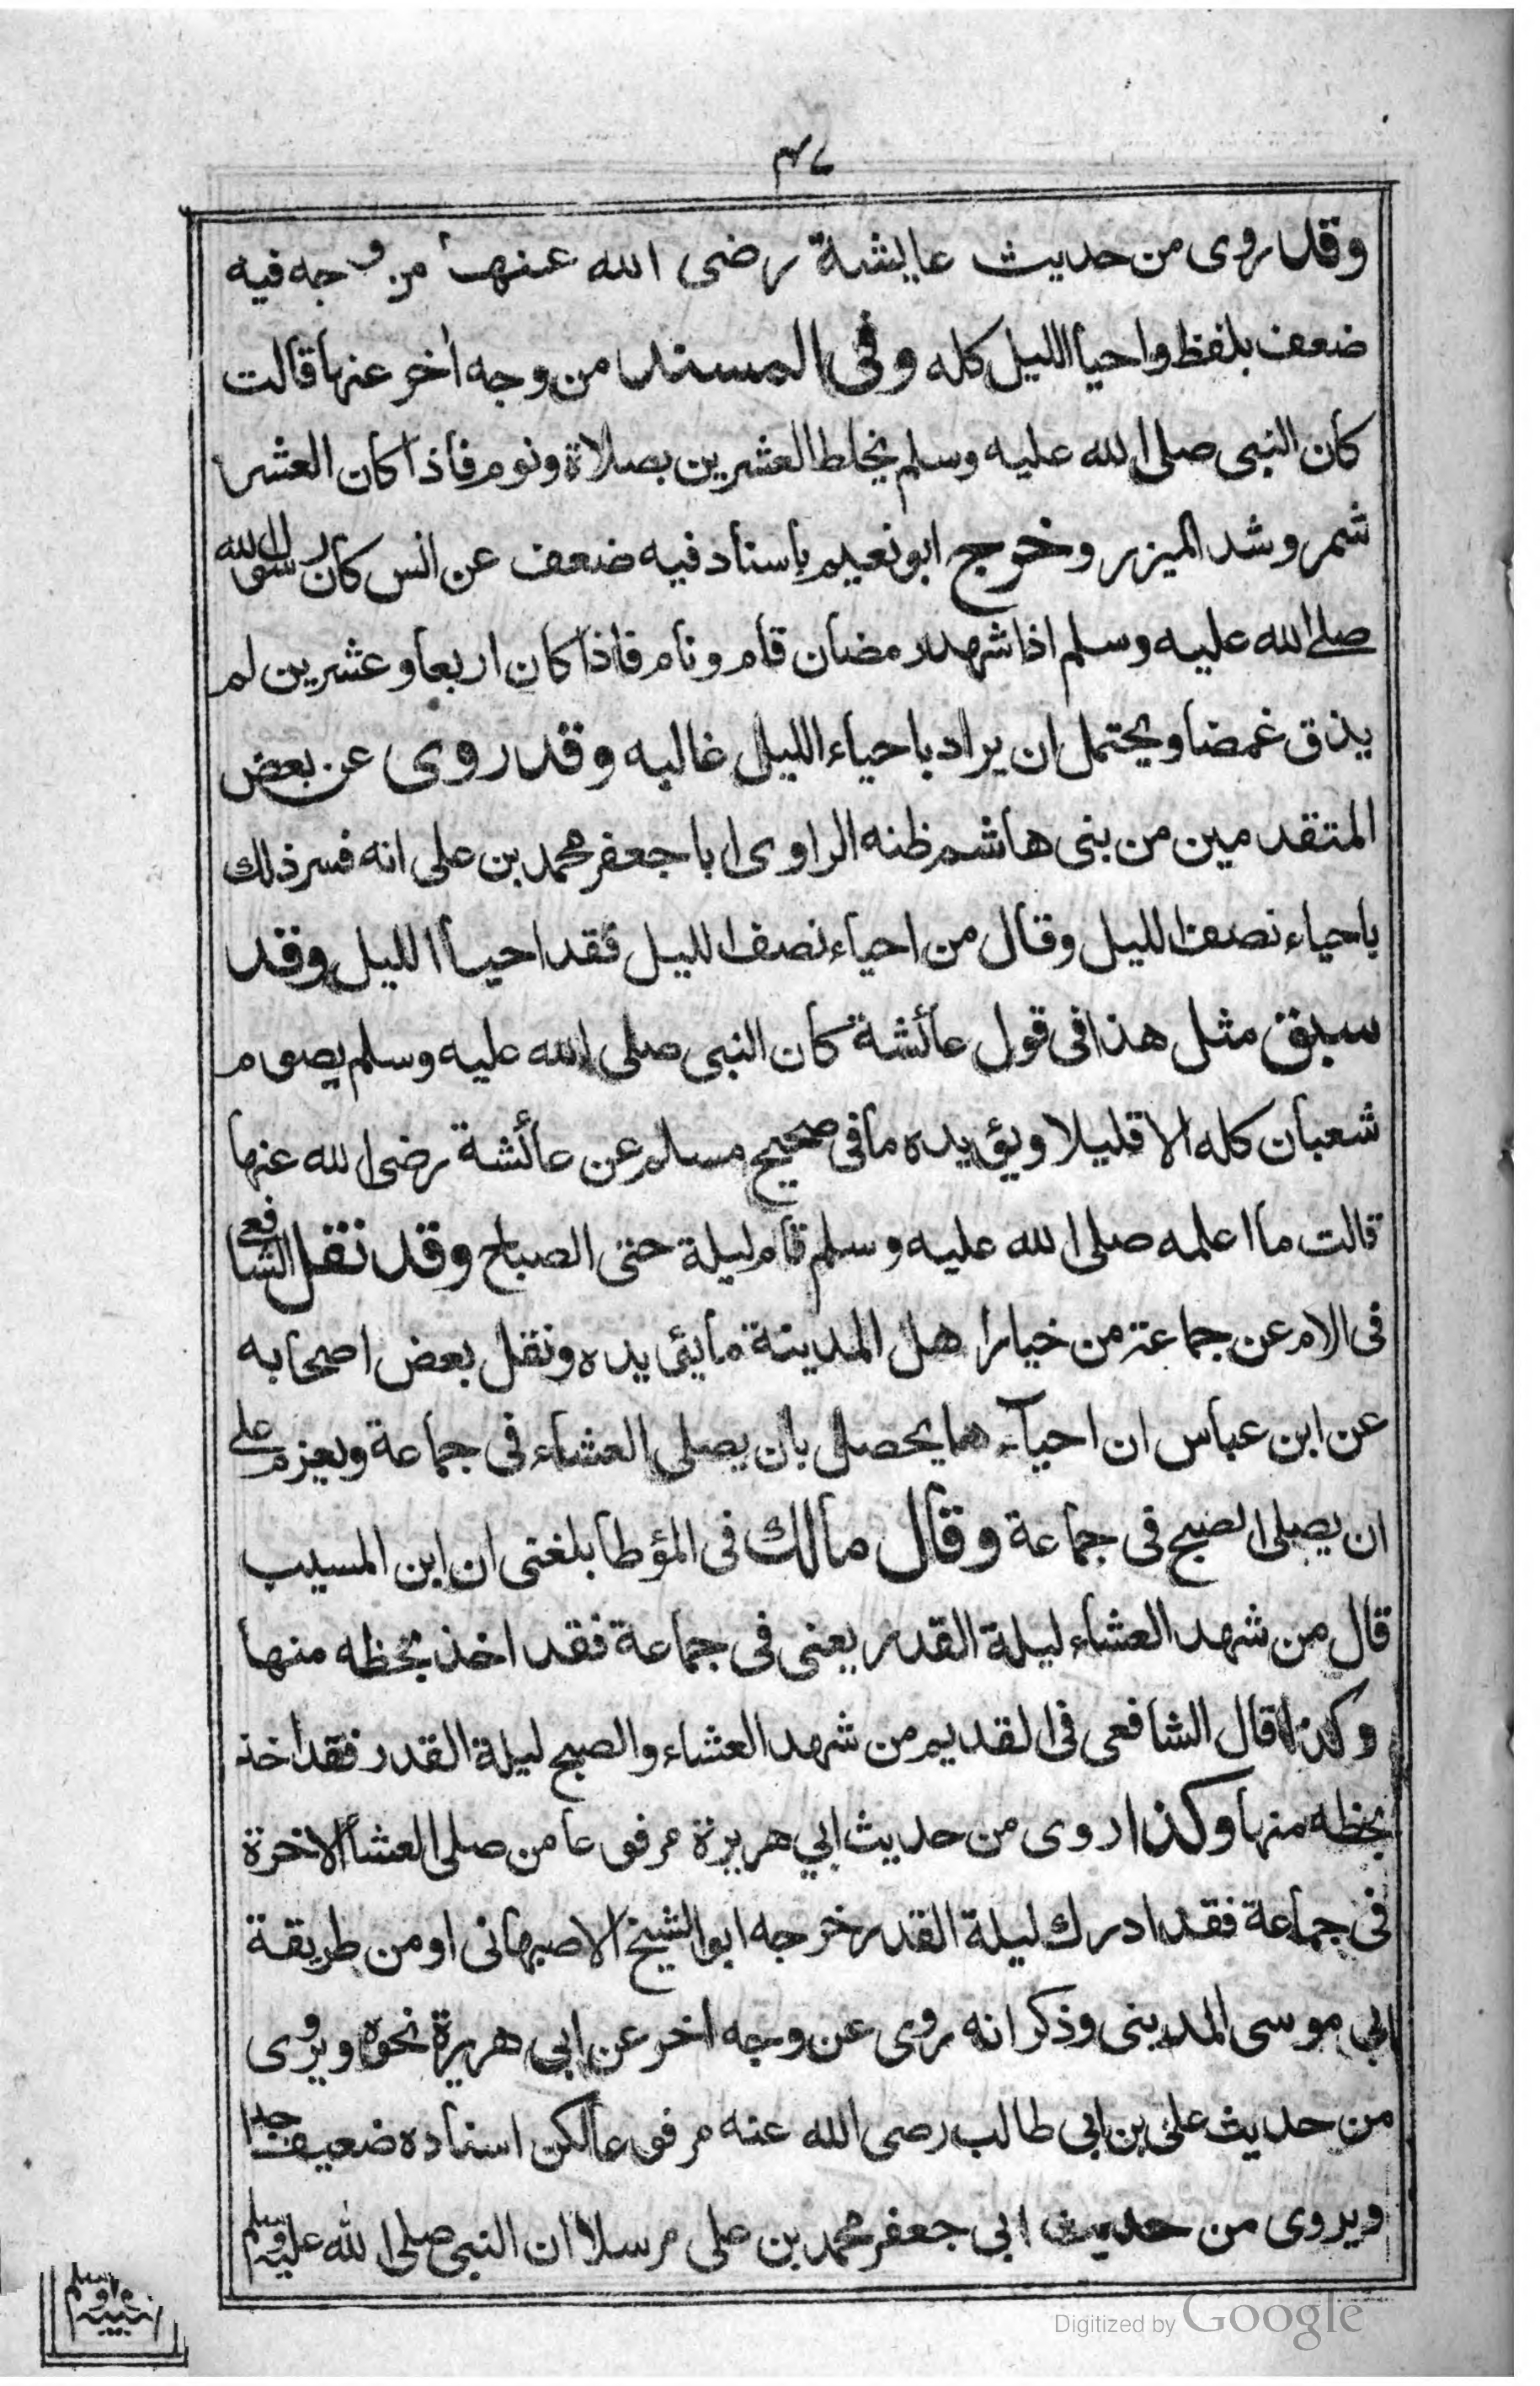 ٤٧
وقد روى من حديث عايشة رضى الله عنها من وجه فيه
ضعف بلفظ واحيا الليل كله وفى المسند من وجه اٰخر عنها قالت
كان النبى صلى الله عليه وسلم يخلط العشرين بصلاة ونوم فاذا كان العشر
شمر وشد الميزر وخرج ابو نعيم باسناد فيه ضعف عن انس كان رسول الله
صلى الله عليه وسلم اذا شهد رمضان قام ونام فاذا كان اربعا وعشرين لم
يذق غمضا ويحتمل ان يراد باحياء الليل غالبه وقد روى عن بعض
المتقدمين من بنى هاشم ظنه الراوى ابا جعفر محمد بن على انه فسر ذلك
باحياء نصف الليل وقال من احياء نصف الليل فقد احيا الليل وقد
سبق مثل هذا فى قول عائشة كان النبى صلى الله عليه وسلم يصوم
شعبان كله الا قليلا ويؤيده ما فى صحيح مسلم عن عائشة رضى الله عنها
قالت ما اعلمه صلى الله عليه وسلم قام ليلة حتى الصباح وقد نقل الشافعى
فى الام عن جماعة من خيار اهل المدينة ما يئيده ونقل بعض اصحابه
عن ابن عباس ان احياءها يحصل بان يصلى العشاء فى جماعة ويعزم على
ان يصلى الصبح فى جماعة وقال مالك فى المؤطا بلغنى ان ابن المسيب
قال من شهد العشاء ليلة القدر يعنى فى جماعة فقد اخذ بحظه منها
وكذا قال الشافعى فى القديم من شهد العشاء والصبح ليلة القدر فقد اخذ
بحظه منها وكذا روى من حديث ابي هريرة مرفوعا من صلى العشاء الاخرة
فى جماعة فقد ادرك ليلة القدر خرجه ابو الشيخ الاصبهانى او من طريقة
ابي موسى المدينى وذكر انه روى عن وجه اخر عن ابى هريرة نحوه ويروى
من حديث على بن ابى طالب رضى الله عنه مرفوعا لكن اسناده ضعيف جدا
ويروى من حديث ابى جعفر محمد بن على مرسلا ان النبى صلى الله عليه وسلم
Digitized by Google